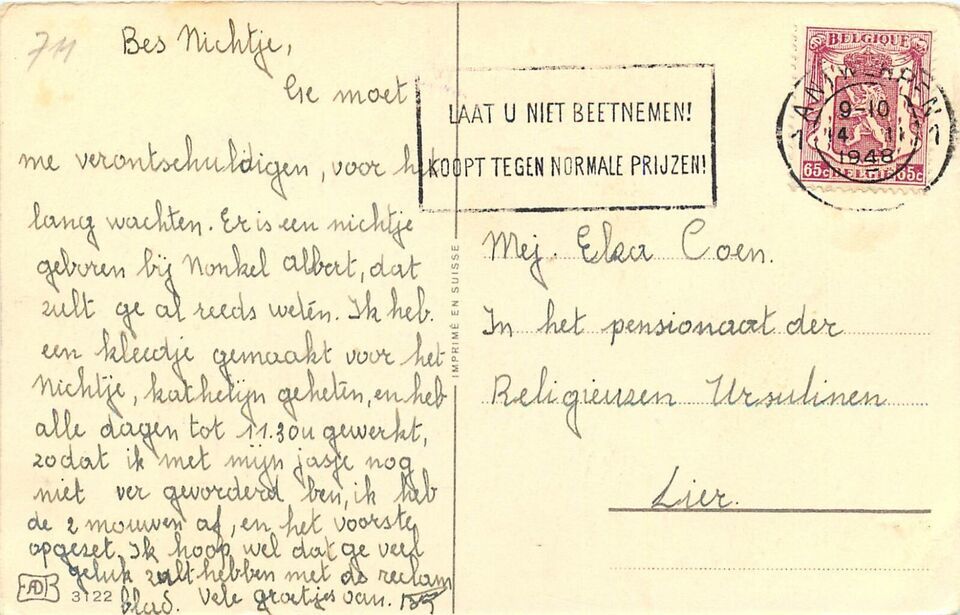 711
Bes Nichtje,
Ge moet
me verontschuldigen, voor het
lang wachten. Er is een nichtje
geboren bij Nonkel Albert, dat
zult ge al reeds weten. Ik heb
een kleedje gemaakt voor het
Nichtje, kathelijn geheten, en heb
alle dagen tot 11.30u gewerkt,
zodat ik met mijn jasje nog
niet ver gevorderd ben, ik heb
de 2 mouwen af, en het voorste
opgezet. Ik hoop wel dat ge veel
geluk zult hebben met de reclam
blad. Vele groetjes van.
3122
IMPRIMÉ EN SUISSE
LAAT U NIET BEETNEMEN!
KOOPT TEGEN NORMALE PRIJZEN!
BELGIQUE
65c BELGIE 65c
1 ANTWERPEN 1
9-10
14 II
1948
Mej. Elza Coen.
In het pensionaat der
Religieuzen Ursulinen
Lier.